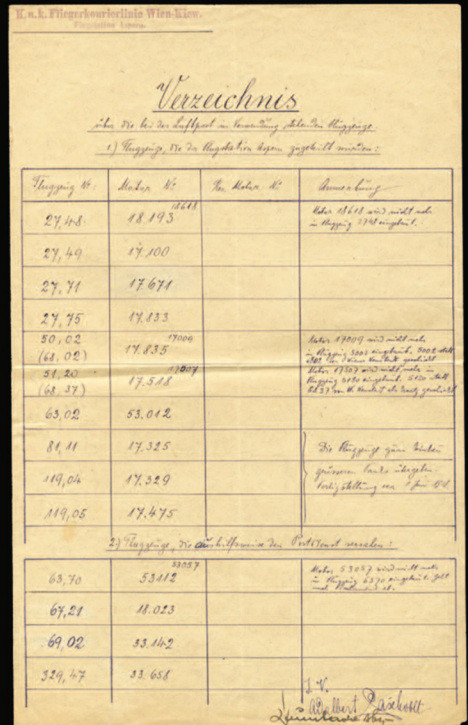 K.u.k. Fliegerkourierlinie Wien-Kiew.
Flugstation Aspern.
Verzeichnis
über die bei der Luftpost in Verwendung stehenden Flugzeuge
1.) Flugzeuge, die der Flugstation Aspern zugeteilt wurden:
Flugzeug Nr. Motor Nr. Res. Motor Nr. Anmerkung
27,48 18.193 18618 Motor 18618 wird nicht mehr
in Flugzeug 2748 eingebaut.
27,49 17.100
27,71 17.671
27,75 17.133
50,02 17009 Motor 17009 wird nicht mehr
(68,02) 17.835 in Flugzeug 5002 eingebaut. 5002 statt
51,20 17307 Motor 17307 wird nicht mehr in
(68,37) 17.518 Flugzeug 5120 eingebaut. 5120 statt
63,02 53.012
81,11 17.325 Die Flugzeuge
119,04 17.329
119,05 17.475
2.) Flugzeuge, die aushilfsweise den Postdienst versehen:
63,70 53112 53057 Motor 53057 wird nicht mehr
in Flugzeug 6370 eingebaut.
67,21 18.023
69,02 33.142
329,47 33.658
I. V.
Adalbert